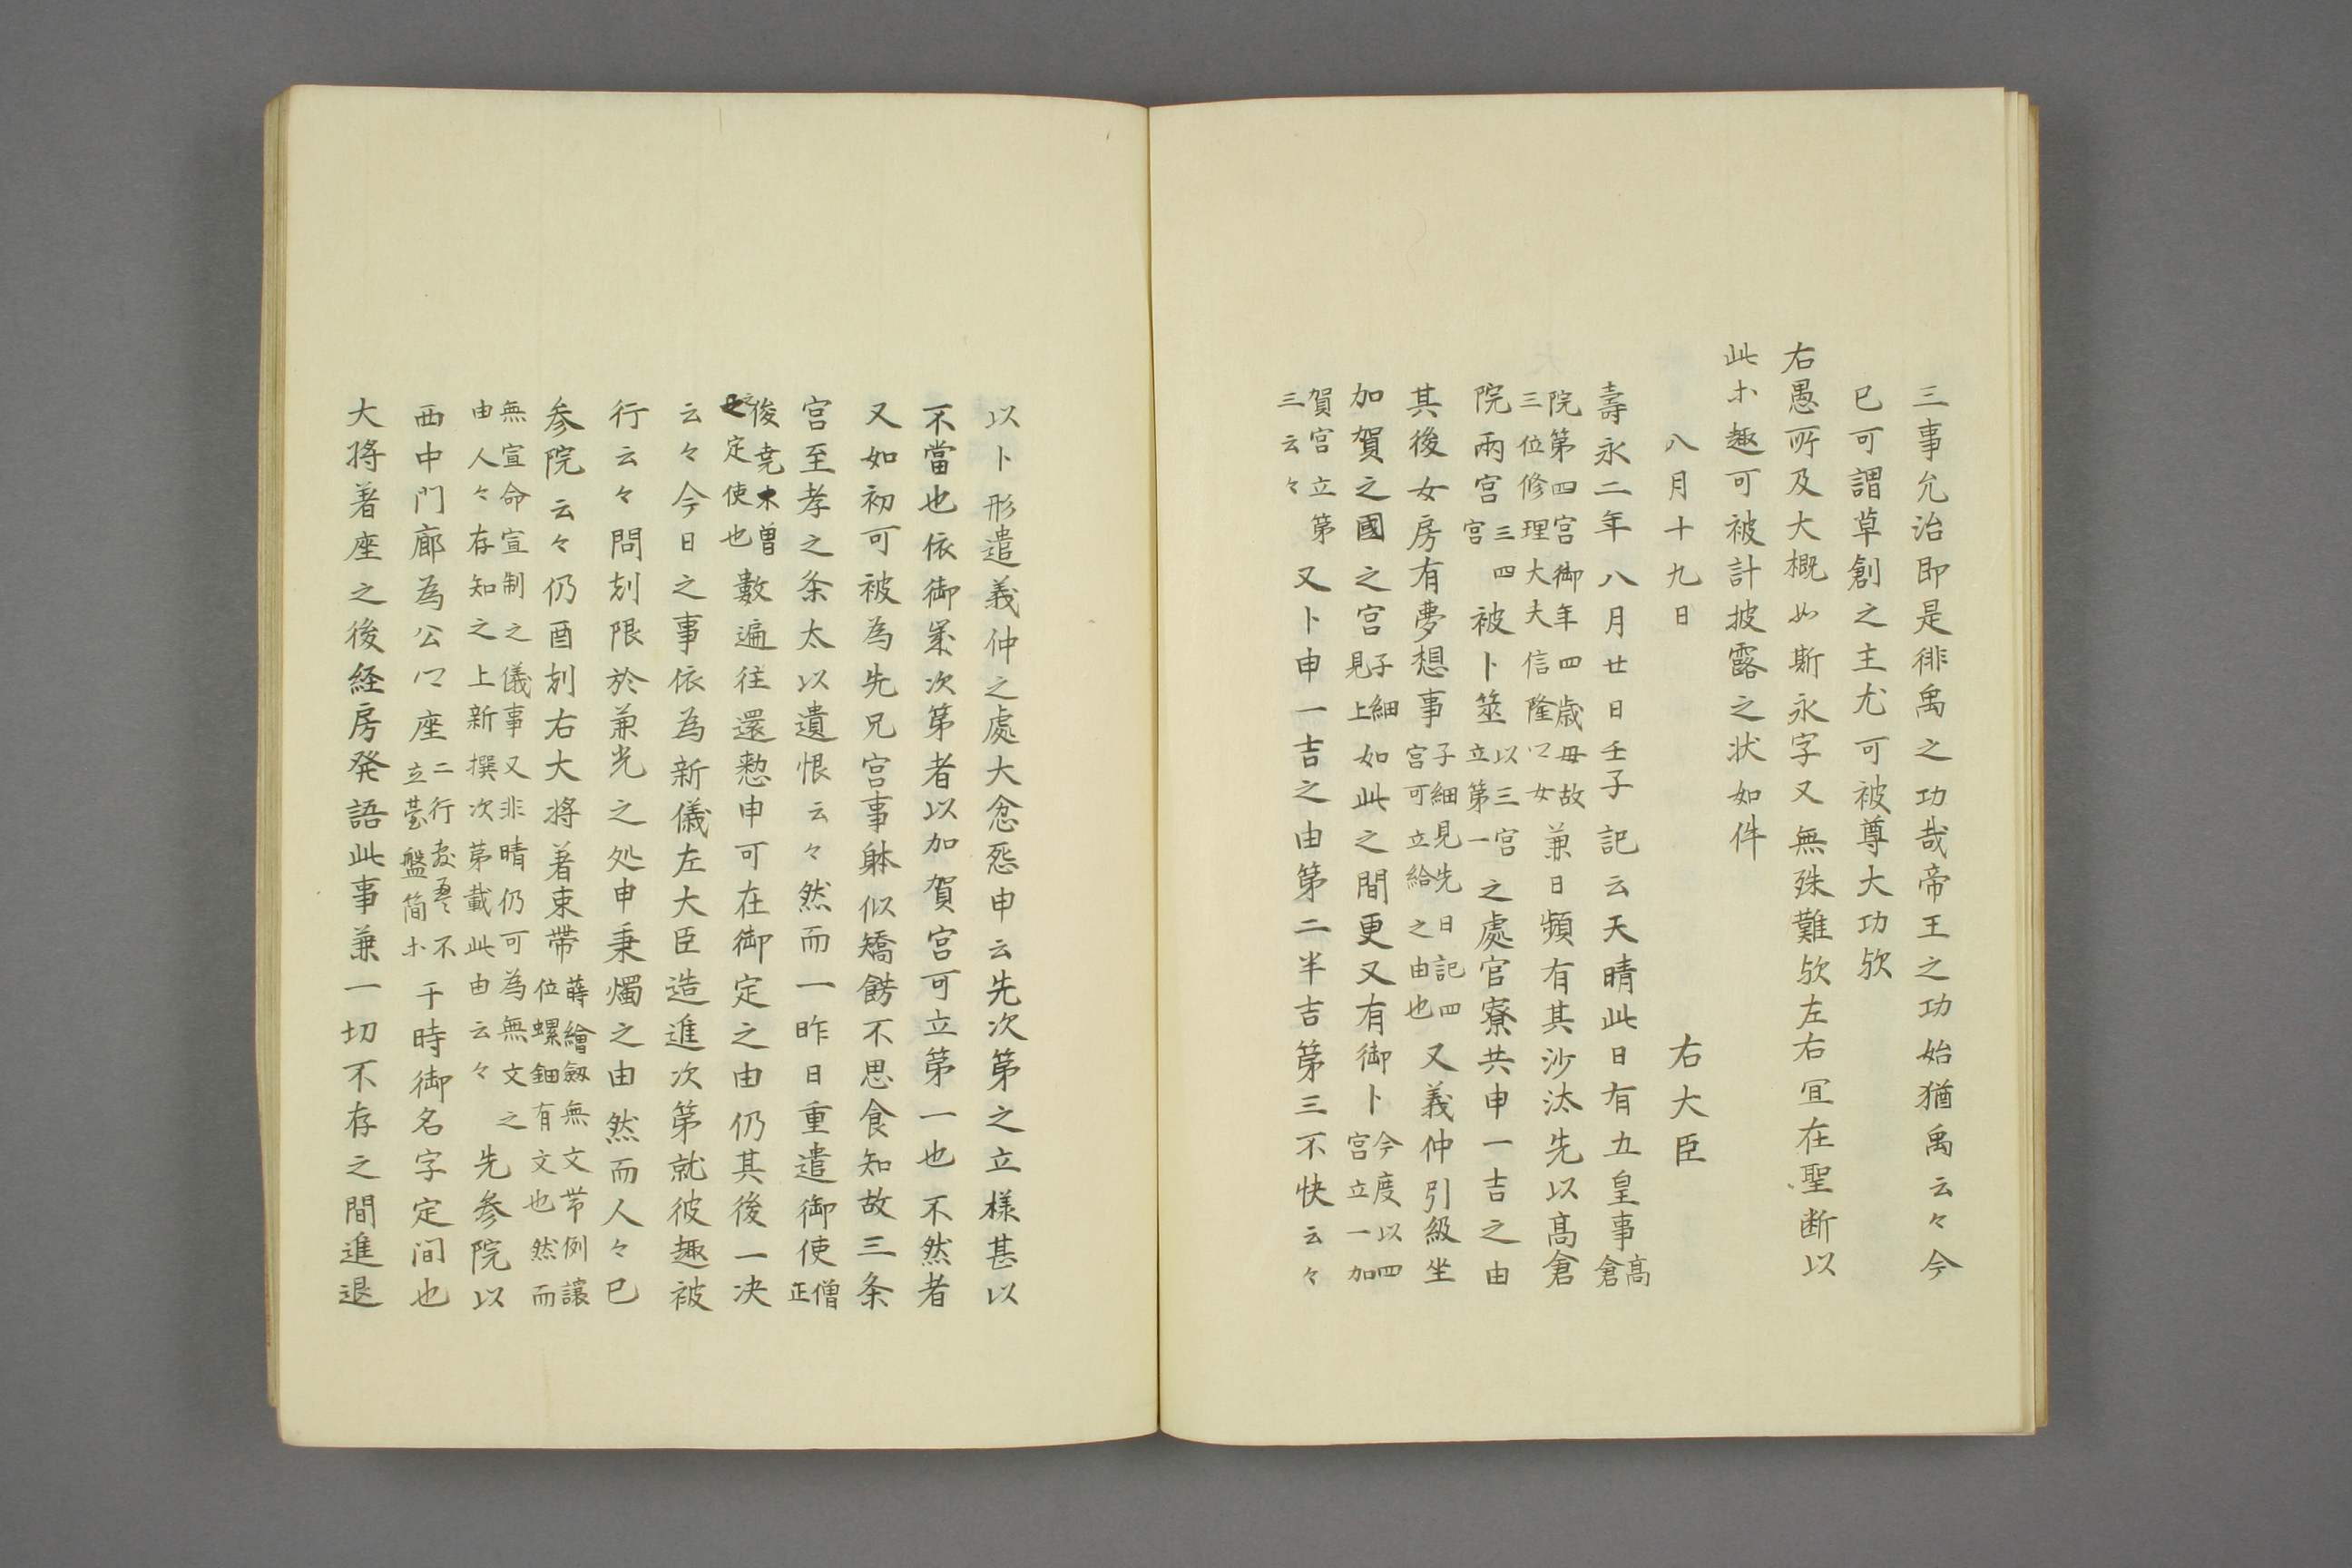 三事允治即是徘禹之功哉帝王之功始猶禹云々今
已可謂草創之主尤可被尊大功欤
右愚所及大概如斯永字又無殊難欤左右冝在聖断以
此木趣可被計披露之状如件
八月十九日
右大臣
壽永二年八月廿日壬子記云天晴此日有五皇事髙
倉
院第四宮御年四歳母故
三位修理大夫信隆卿女兼日頻有其沙汰先以髙倉
院兩宮三四
宮被卜筮以三宮
立第一之處官寮共申一吉之由
其後女房有夢想事子細見先日記四
宮可立給之由也又義仲引級坐
加賀之國之宮子細
見上如此之間更又有御卜今度以四
宮立一加
賀宮立第
三云々又卜申一吉之由第二半吉第三不快云々
以卜形遣義仲之處大忿怨申云先次第之立樣甚以
不當也依御畧次第者以加賀宮可立第一也不然者
又如初可被為先兄宮事躰似矯餝不思食知故三条
宮至孝之条太以遺恨云々然而一昨日重遣御使僧
正
俊尭木曽
之定使也數遍往還愸申可在御定之由仍其後一决
云々今日之事依為新儀左大臣造進次第就彼趣被
行云々問刻限於兼光之処申秉燭之由然而人々已
参院云々仍酉刻右大将著束帯蒔繪劔無文帯例讓
位螺鈿有文也然而
無宣命宣制之儀事又非晴仍可為無文之
由人々存知之上新撰次第載此由云々先参院以
西中門廊為公卿座二行敷不
立䑓盤简木于時御名字定间也
大将著座之後経房発語此事兼一切不存之間進退